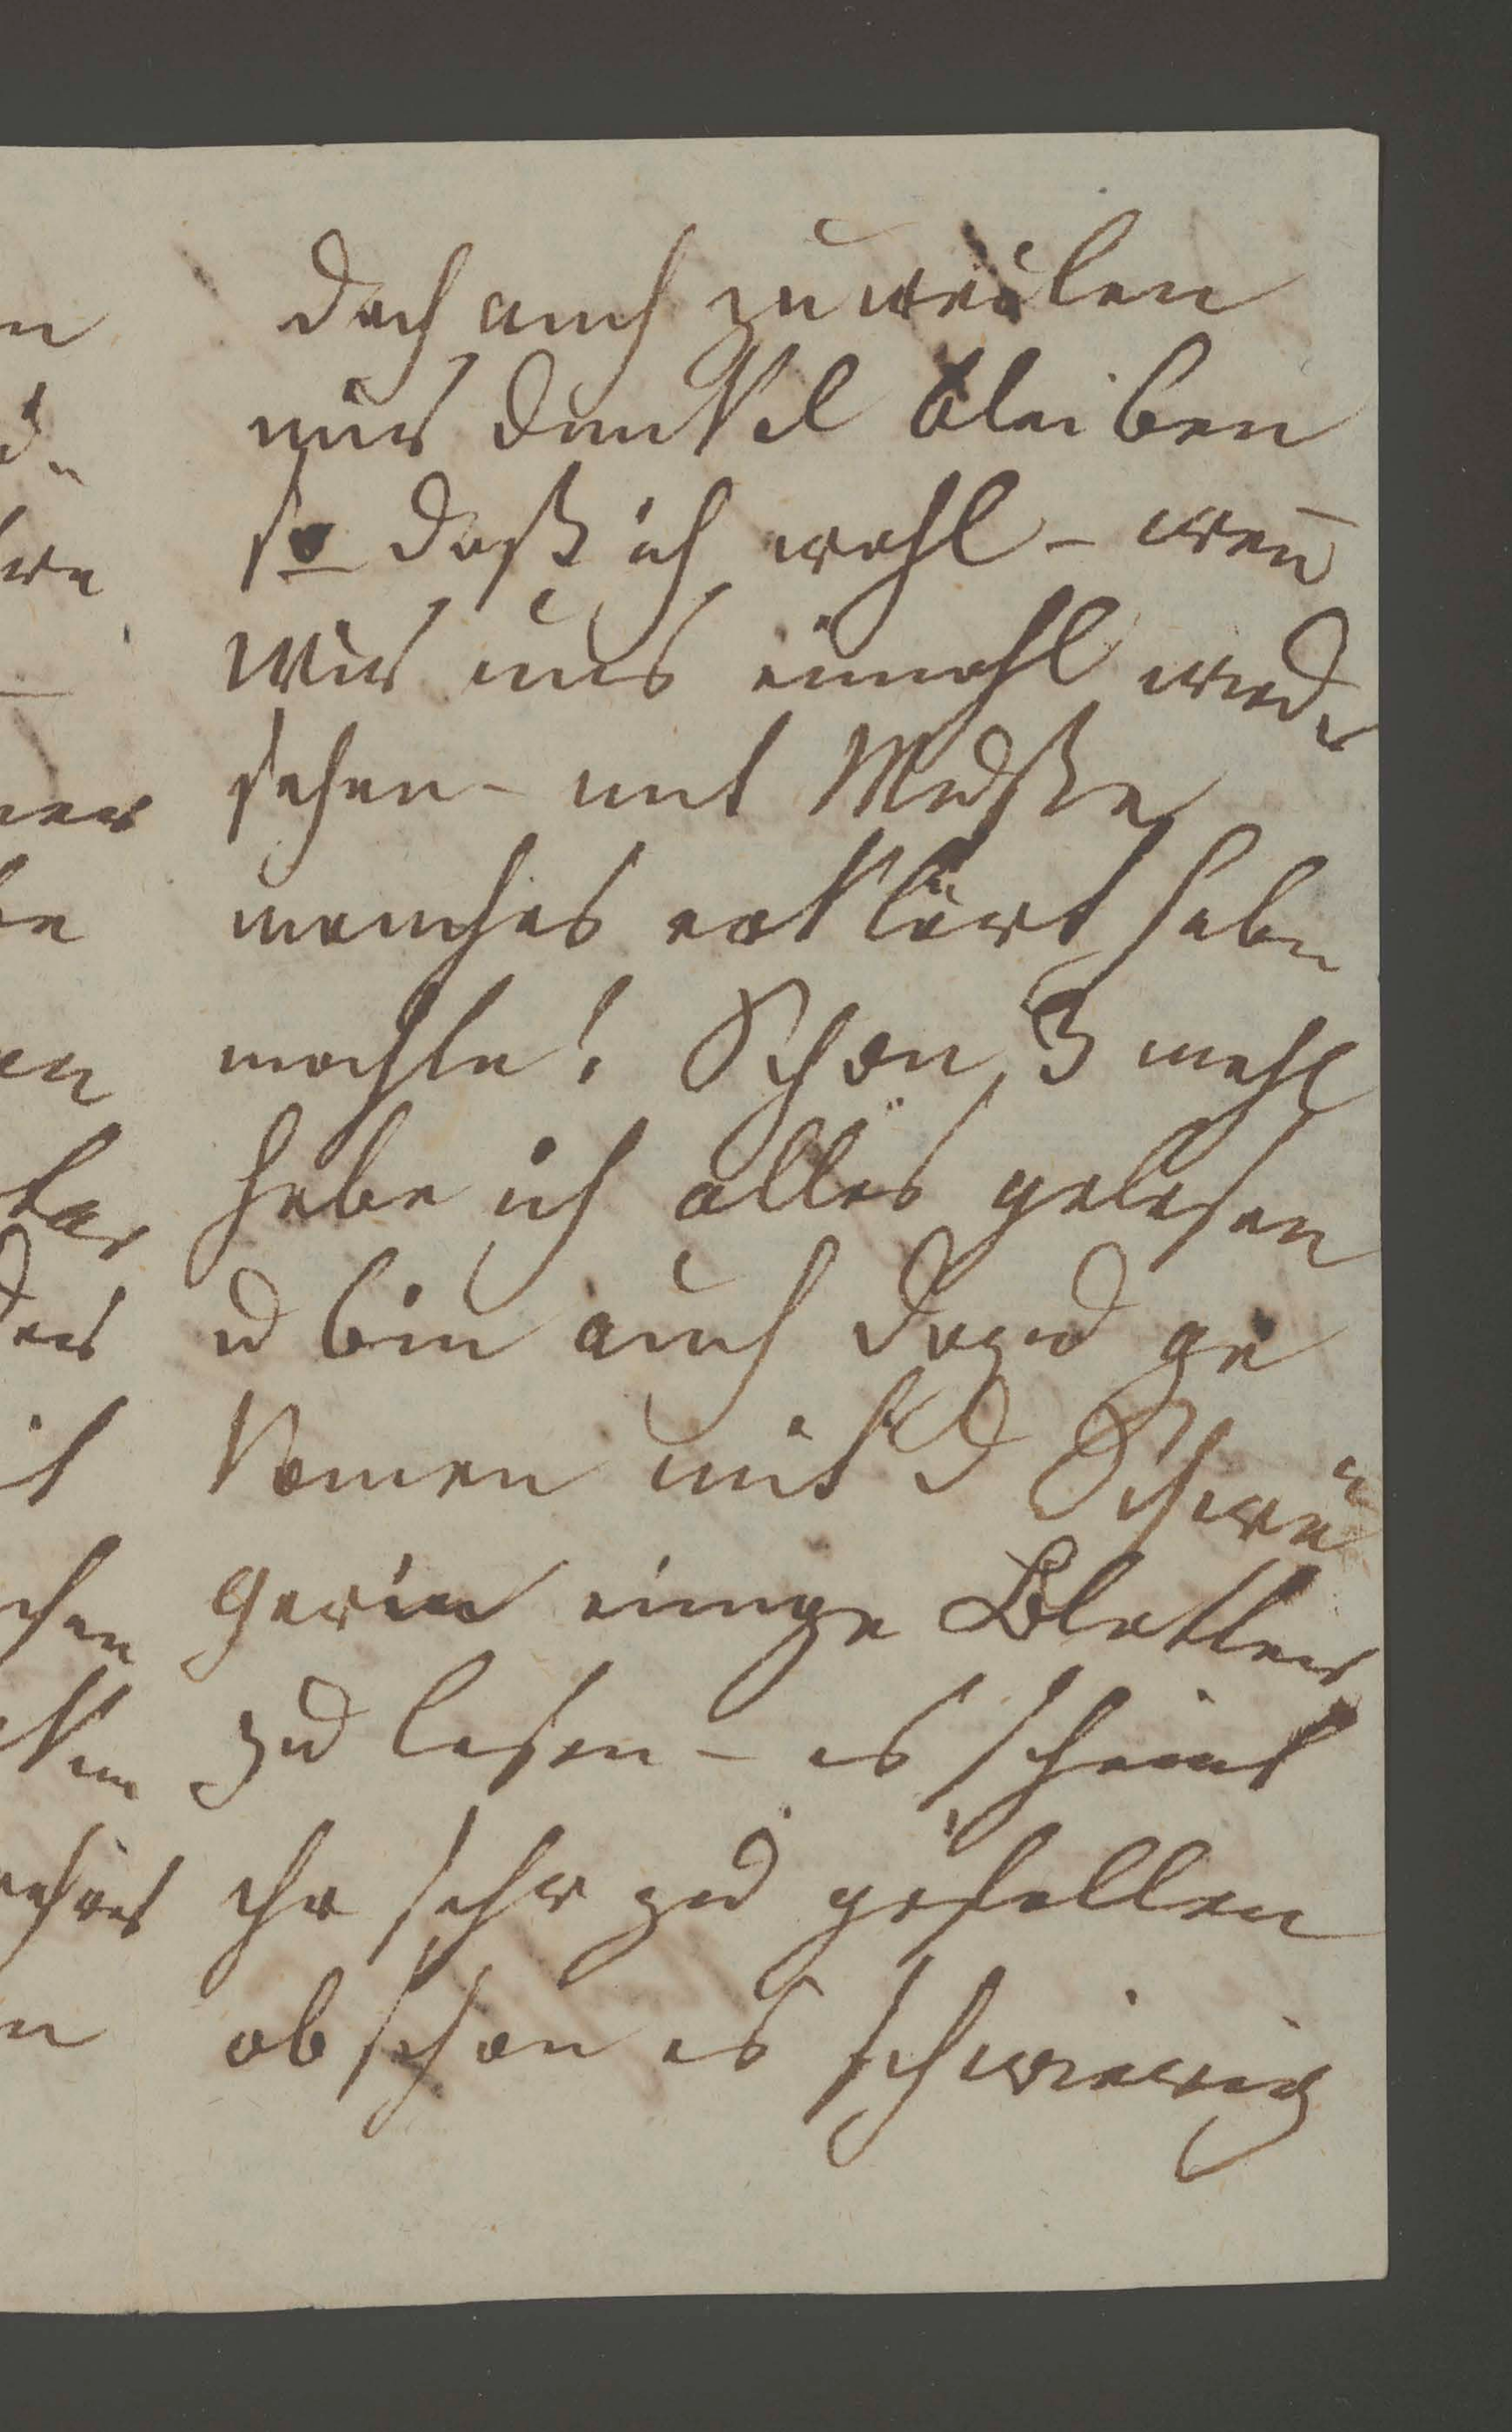 doch auch zuweilen
mir dunkel bleiben
so daß ich wohl – wen̄
wir uns einmahl wieder
sehen – mit Muße
manches erklärt haben
mochte! Schon 3 mahl
habe ich alles gelesen
u bin auch dazu ge
komen mit d Schwä
gerin einige Blatter
zu lesen – es scheint
ihr sehr zu gefallen
obschon es schwierig